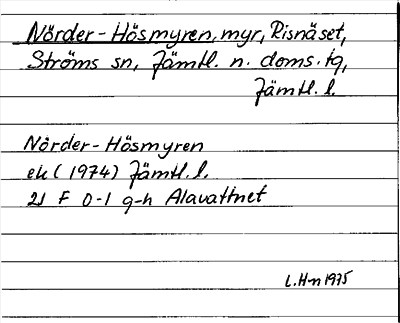 Nörder-Hösmyren, myr, Risnäset,
Ströms sn, Jämtl. n. doms. tg,
Jämtl. l.
Nörder-Hösmyren
ek (1974) Jämtl. l.
21 F 0-1 g-h Alavattnet
L.H-n 1975